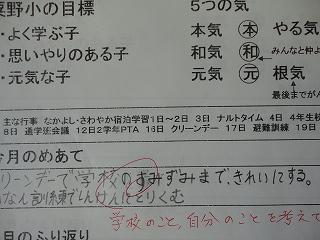 粟野小の目標 5つの気
・よく学ぶ子 本気 本 やる気
・思いやりのある子 和気 和 みんなと仲よ
・元気な子 元気 元 根気
最後までがん
主な行事 なかよし・さわやか宿泊学習1日~2日 3日 ナルトタイム 4日 4年生校
8日 通学班会議 12日2学年PTA 16日 クリーンデー 17日 避難訓練 19日
今月のめあて
リーンデーで学校のすみずみまで、きれいにする。
なん訓練でしんけんにとりくむ
学校のこと、自分のことを考えて
月のふり返り